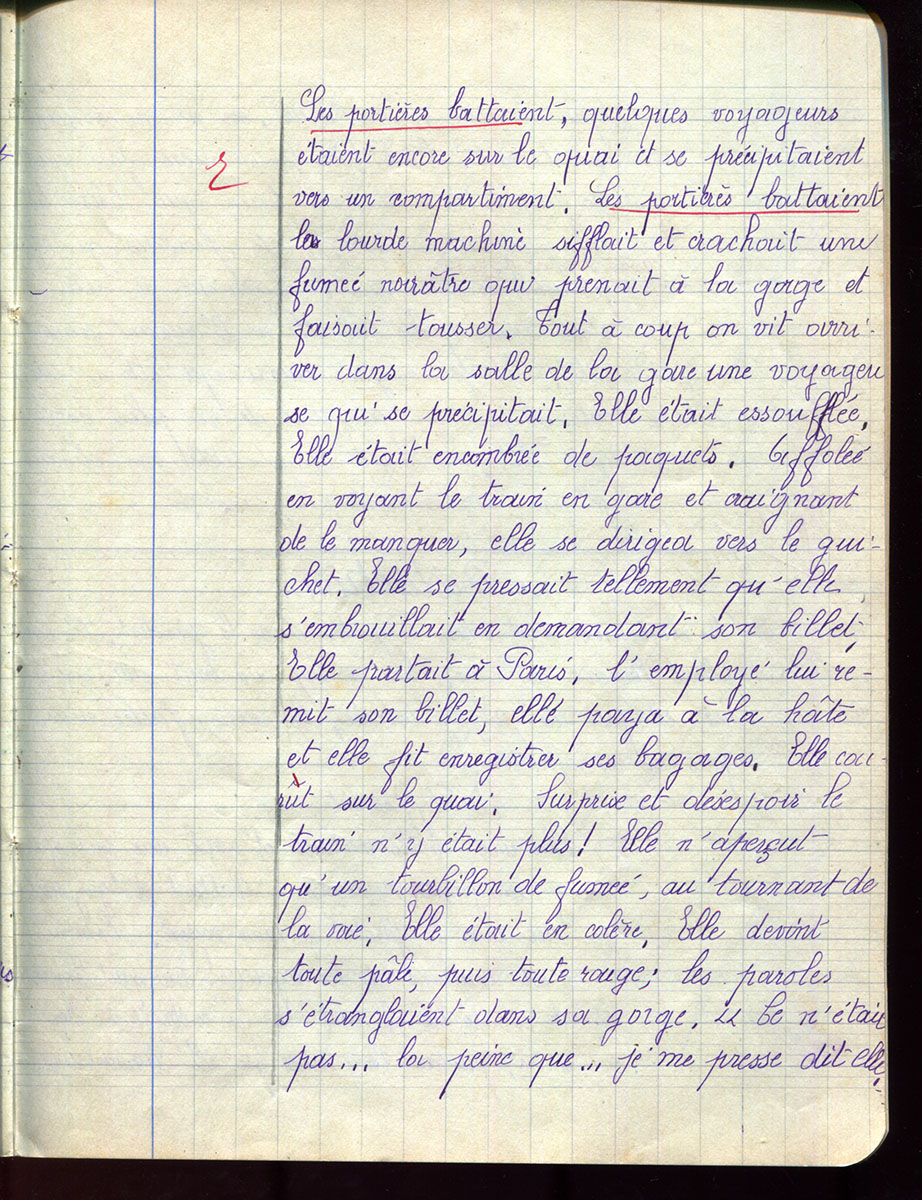 Les portières battaient, quelques voyageurs
étaient encore sur le quai et se précipitaient
r
vers un compartiment. Les portières battaient
la lourde machine sifflait et crachait une
fumée noirâtre qui prenait à la gorge et
faisait tousser. Tout à coup on vit arri-
ver dans la salle de la gare une voyageu
se qui se précipitait. Elle était essoufflée.
Elle était encombrée de paquets. Affolée
en voyant le train en gare et craignant
de le manquer, elle se dirigea vers le gui-
chet. Elle se pressait tellement qu'elle
s'embrouillait en demandant son billet.
Elle partait à Paris, l'employé lui re-
mit son billet, elle paya à la hâte
et elle fit enregistrer ses bagages. Elle cou-
rût sur le quai. Surprise et désespoir le
train n'y était plus! Elle n'aperçut
qu'un tourbillon de fumée, au tournant de
la voie. Elle était en colère. Elle devint
toute pâle, puis toute rouge; les paroles
s'étranglaient dans sa gorge. « Ce n'était
pas... la peine que... je me presse dit elle,